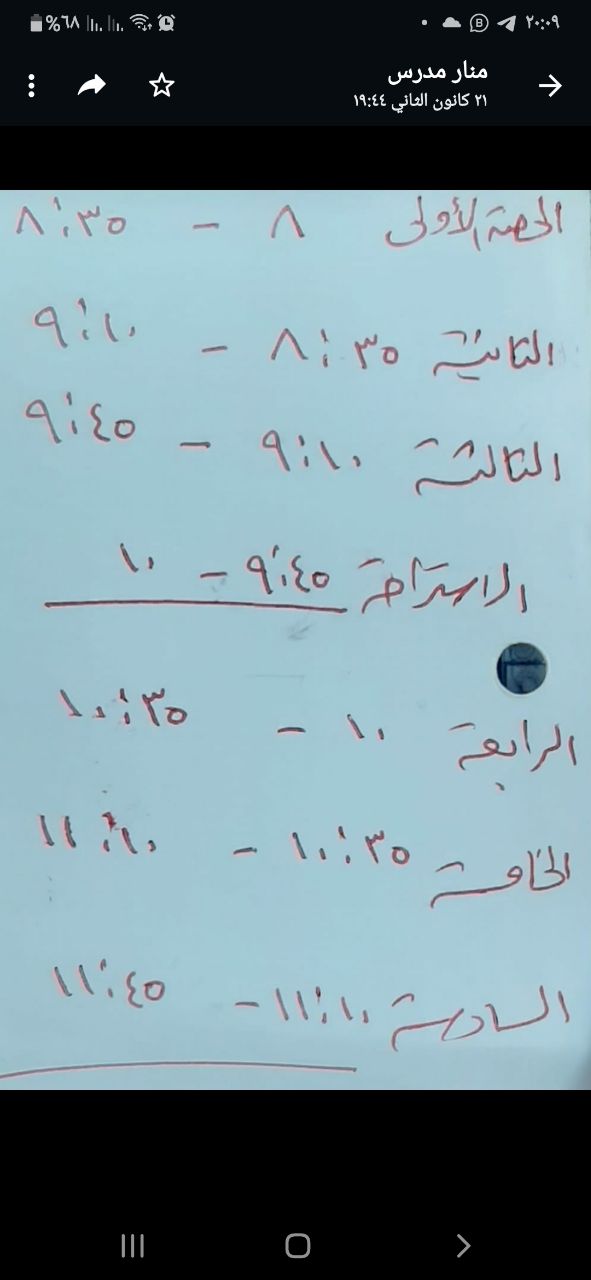 ٢٠:٠٩ %٦٨
منار مدرس
٢١ كانون الثاني ١٩:٤٤
الحصة الأولى ٨ - ٨:٣٥
الثانية ٨:٣٥ - ٩:١٠
الثالثة ٩:١٠ - ٩:٤٥
الاستراحة ٩:٤٥ - ١٠
الرابعة ١٠ - ١٠:٣٥
الخامسة ١٠:٣٥ - ١١:١٠
السادسة ١١:١٠ - ١١:٤٥